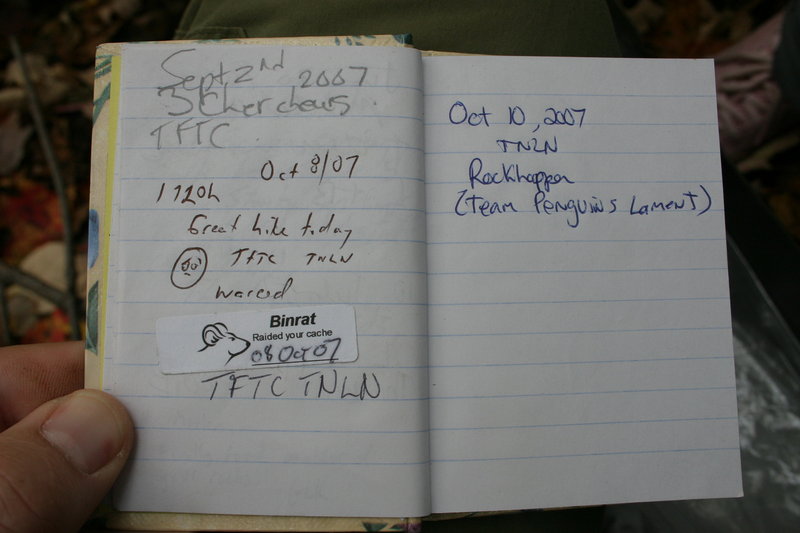 Sept 2nd 2007
3 Chercheurs.
TFTC.
Oct 8/07
1720h
Great hike today
TFTC TNLN
wareod
Binrat
Raided your cache
08 Oct 07
TFTC TNLN
Oct 10, 2007
TNLN
Rockhopper
(Team Penguin's Lament)